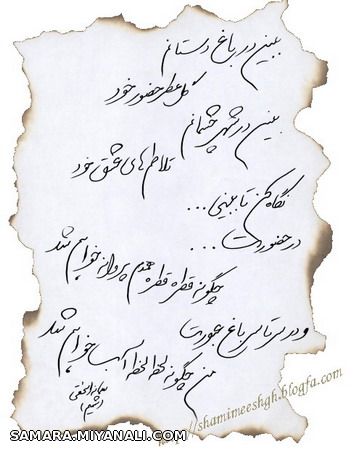 ببین در باغ دستانم
گل عطر حضور خود
ببین در شهر چشمانم
تلاطم های عشق خود
نگاه کن تا ببینی ...
در حضورت ...
چگونه قطره قطره همدم پروانه خواهم شد
و در سرتاسر باغ عبورت
من چگونه لحظه لحظه آسا خواهم شد
http://shamimeeshgh.blogfa.com
SAMARA.MIYANALI.COM